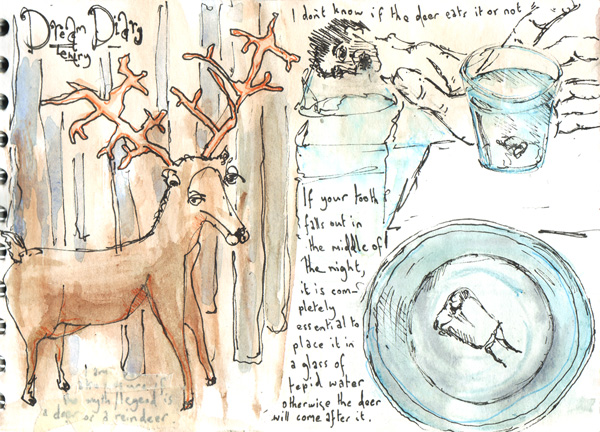 Dream Diary
entry
I don't know if the deer eats it or not
If your tooth
falls out in
the middle of
the night,
it is com-
pletely
essential to
place it in
a glass of
tepid water
otherwise the deer
will come after it.
I am
unsure if
the myth/legend is
a deer or a reindeer.